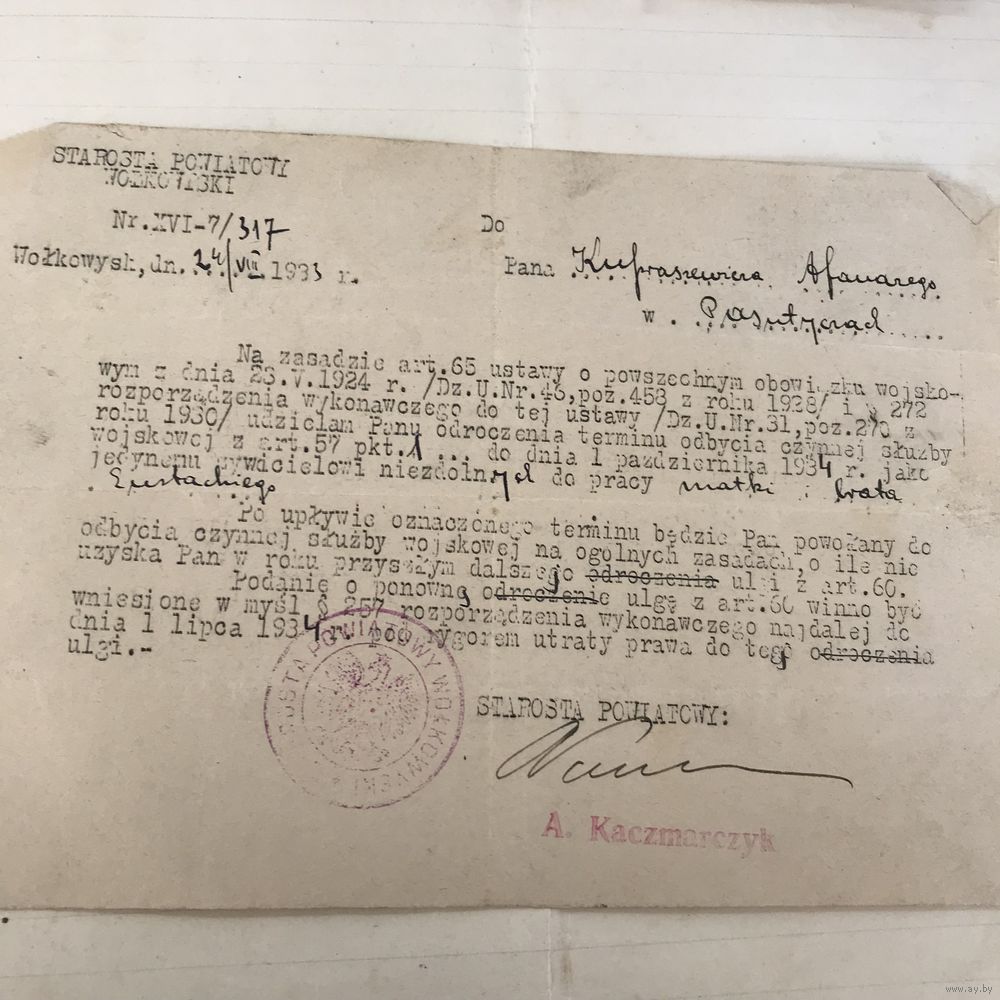 STAROSTA POWIATOWY
WOŁKOWYSKI
Nr.XVI-7/317
Wołkowysk, dn. 24/VIII 1933 r.
Do
Pana Kupraszewicza
w
Na zasadzie art.65 ustawy o powszechnym obowiązku wojsko-
wym z dnia 23.V.1924 r. /Dz.U.Nr.46,poz.458 z roku 1928/ i § 272
rozporządzenia wykonawczego do tej ustawy /Dz.U.Nr.31,poz.270 z
roku 1930/ udzielam Panu odroczenia terminu odbycia czynnej służby
wojskowej z art.57 pkt.1 ... do dnia 1 października 1934 r. jako
jedynemu żywicielowi niezdolnych do pracy matki i brata
Eustachiego
Po upływie oznaczonego terminu będzie Pan powołany do
odbycia czynnej służby wojskowej na ogólnych zasadach, o ile nie
uzyska Pan w roku przyszłym dalszego odroczenia ulgi z art.60.
Podanie o ponowne odroczenie ulgę z art.60 winno być
wniesione w myśl § 257 rozporządzenia wykonawczego najdalej do
dnia 1 lipca 1934 r. pod rygorem utraty prawa do tego odroczenia
ulgi.-
STAROSTA POWIATOWY WOŁKOWYSKI
STAROSTA POWIATOWY:
A. Kaczmarczyk
www.ay.by